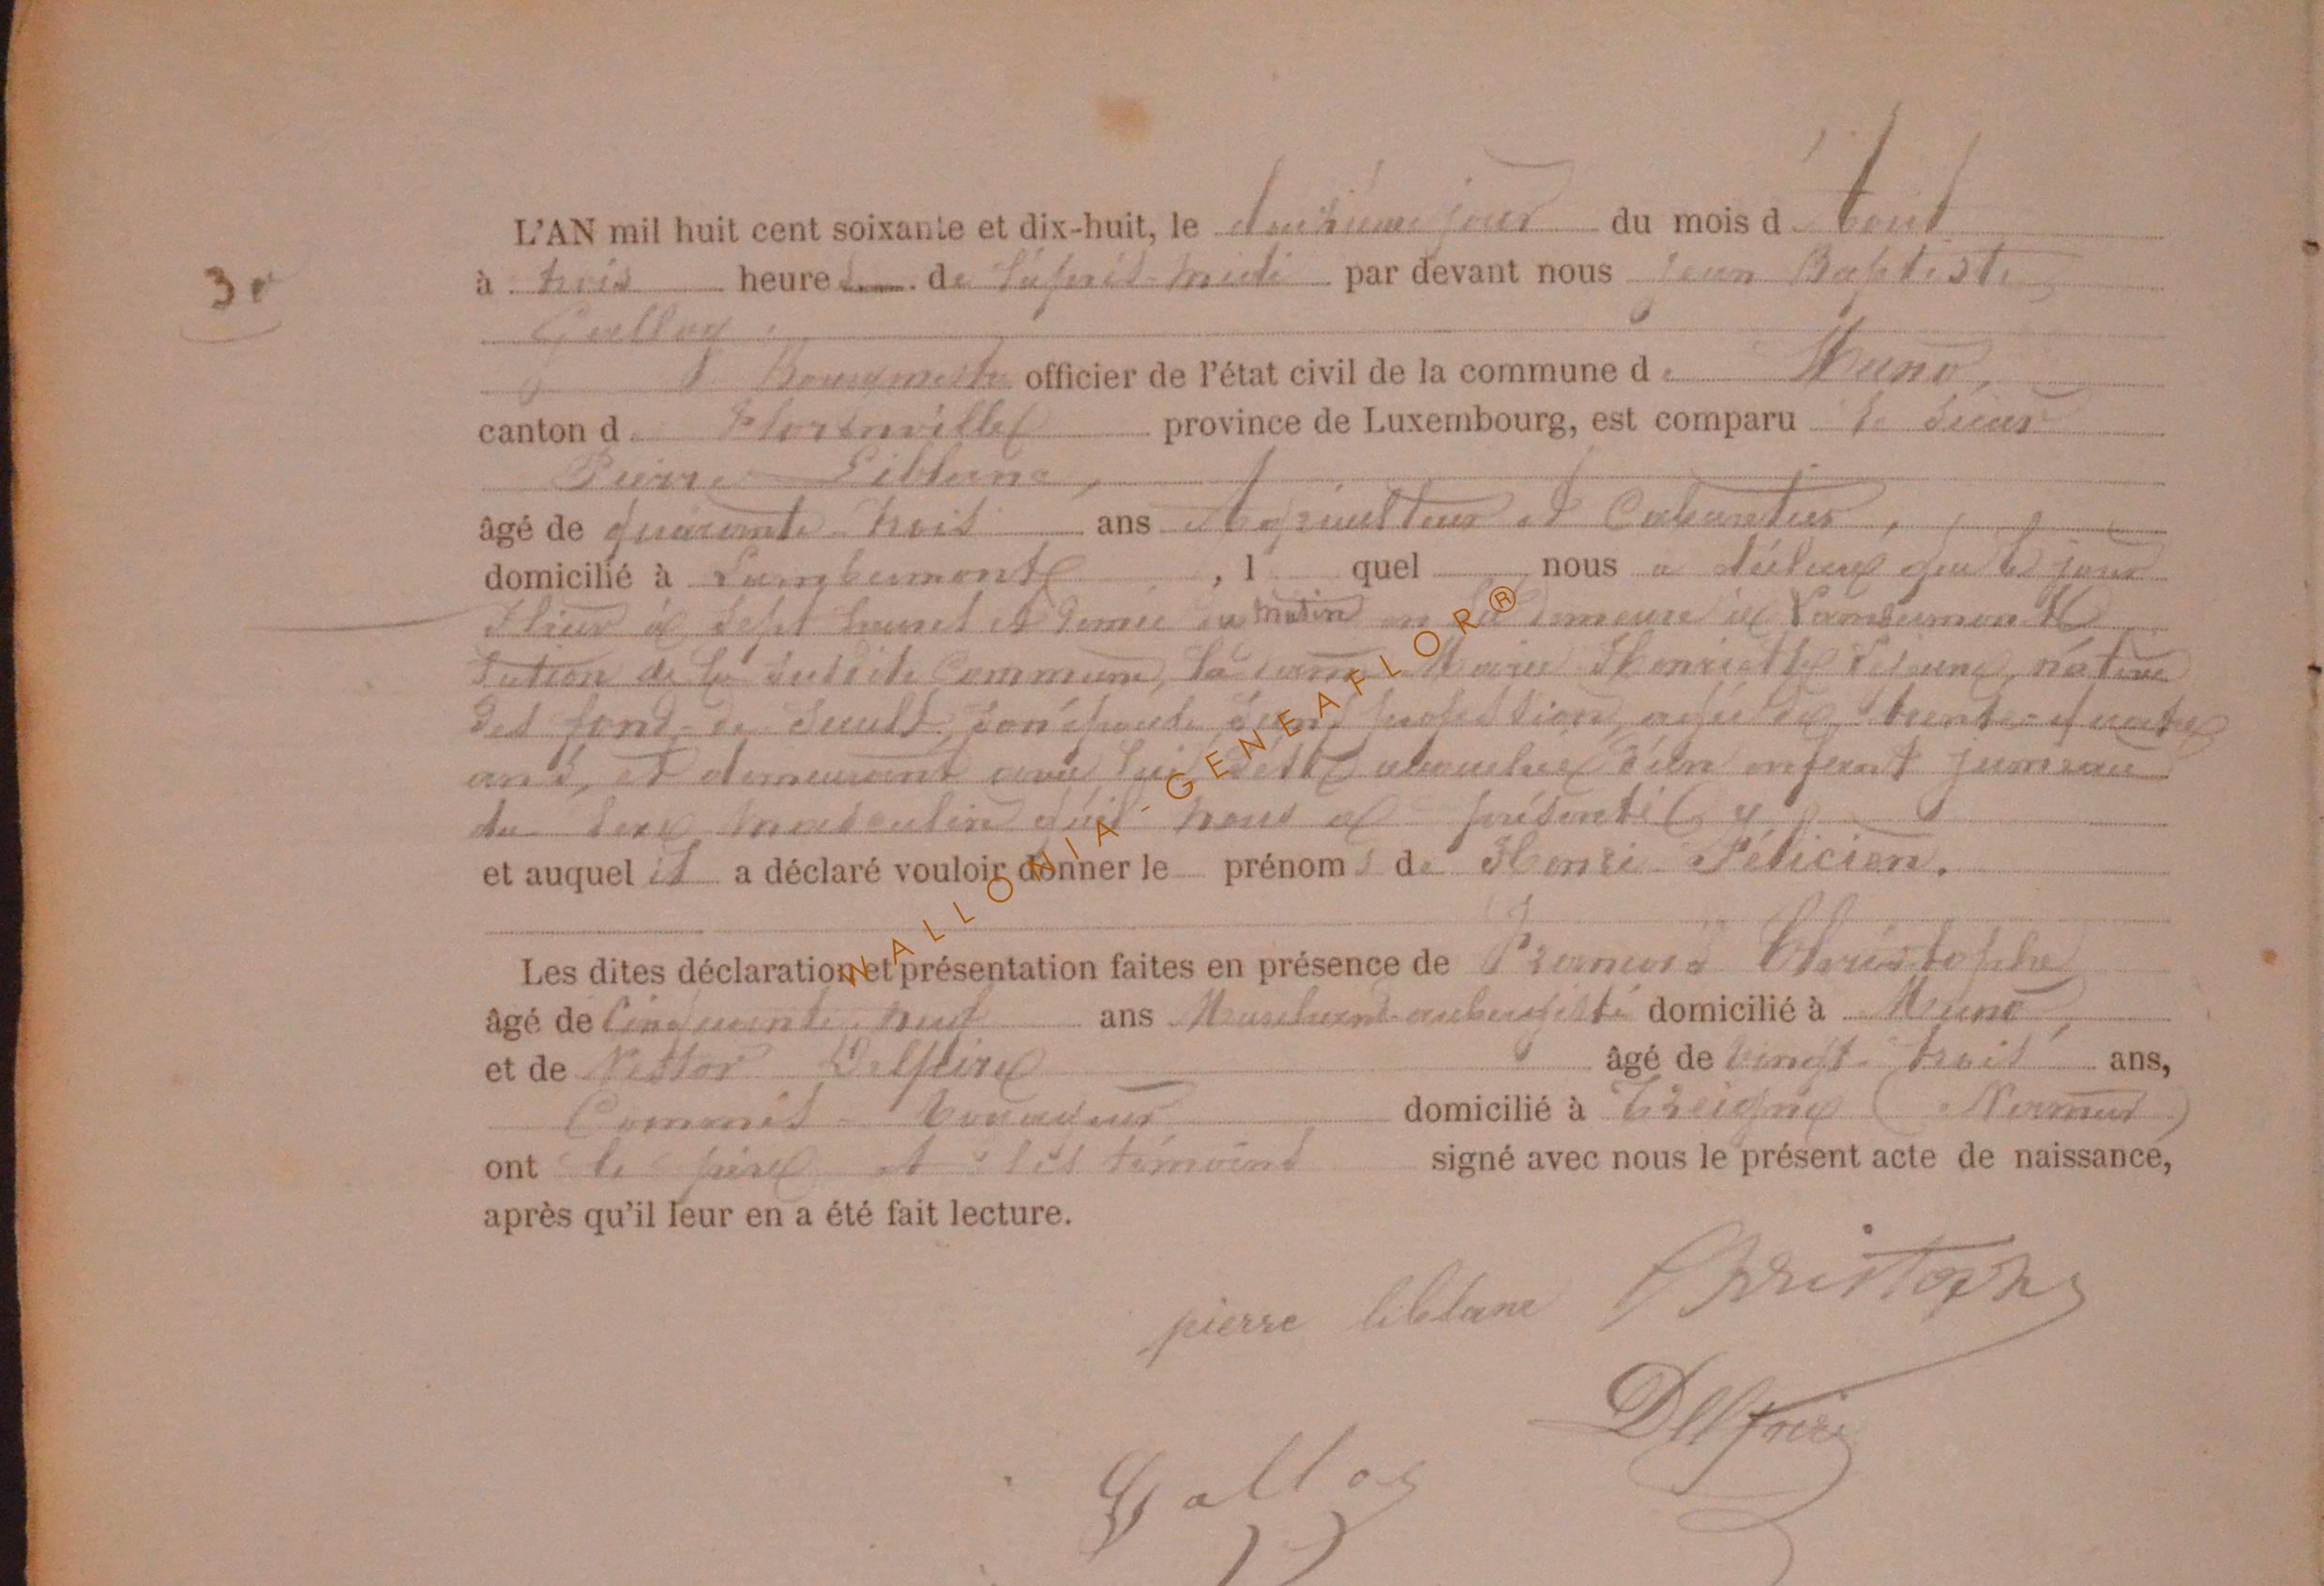 L'AN mil huit cent soixante et dix-huit, le deuxième jour du mois d'Aout
30
à trois heures de l'après-midi par devant nous Jean Baptiste
Bourgmestre officier de l'état civil de la commune de Muno,
canton de Florenville province de Luxembourg, est comparu le sieur
Pierre Leblanc,
âgé de quarante trois ans Agriculteur et Cabaretier,
domicilié à Lambermont, l quel nous a déclaré que le jour
d'hier à sept heures et demie du matin en sa demeure à Lambermont
section de la susdite Commune, la dame Marie Henriette Lejeune, native
des fonds de son épouse sans profession, agée de trente-quatre
ans, et demeurant avec lui est accouchée d'un enfant jumeau
du sexe masculin qu'il nous a présenté
et auquel il a déclaré vouloir donner le prénoms de Henri Félicien.
Les dites déclaration et présentation faites en présence de Christophe
âgé de Cinquante neuf ans aubergiste domicilié à Muno,
et de Nestor Delfeire âgé de vingt-trois ans,
Commis-Voyageur domicilié à Treigne (Namur)
ont le père et les témoins signé avec nous le présent acte de naissance,
après qu'il leur en a été fait lecture.
pierre leblanc Christophe
WALLONIA-GENEAFLOR®